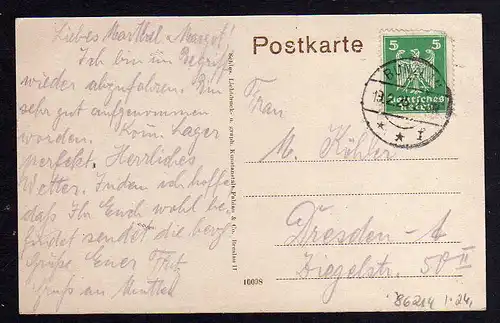 Liebes Marthel u. Margot!
Ich bin im Begriff
wieder abzufahren. Bin
sehr gut aufgenommen
worden. Kom. Lager
perfekt. Herrliches
Wetter. Indem ich hoffe
daß Ihr Euch wohl be-
findet sendet die herzl.
Grüße Euer Fritz
Gruß an Mutter
Lichtdruck- u. graph. Kunstanstalt, & Co., Breslau II
10098
Postkarte
5 5
Deutsches
Reich
19.2.
* * f
Frau
M. Köhler
Dresden-A
Ziegelstr. 50 II
86214 1.24,